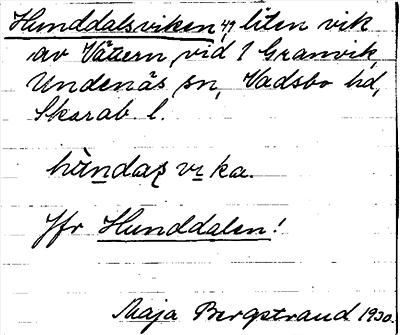 Hunddalsviken, 49 liten vik
av Vättern vid 1 Granvik,
Undenäs sn, Vadsbo hd,
Skarab. l.
hùndaʂ vɩka.
Jfr Hunddalen!
Maja Bergstrand 1930.